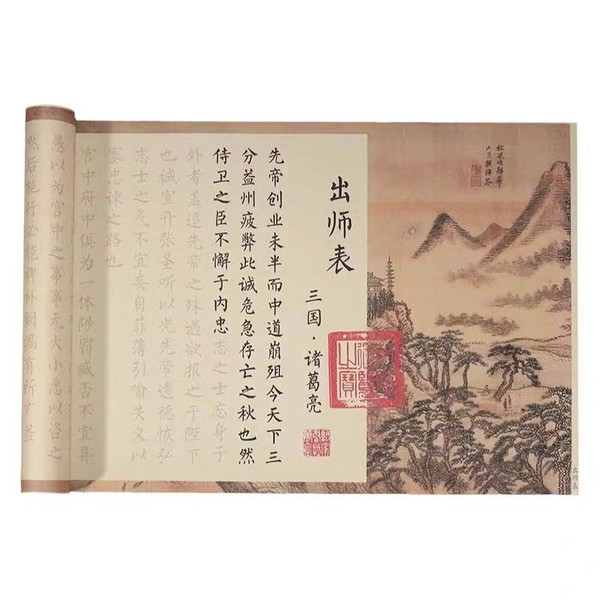 松風吹解帶
山月照彈琴
出师表
出师表
三国·诸葛亮
先帝创业未半而中道崩殂今天下三
分益州疲弊此诚危急存亡之秋也然
侍卫之臣不懈于内忠志之士忘身于
外者盖追先帝之殊遇欲报之于陛下
也诚宜开张圣听以光先帝遗德恢弘
志士之气不宜妄自菲薄引喻失义以
塞忠谏之路也
宫中府中俱为一体陟罚臧否不宜异
愚以为宫中之事事无大小悉以咨之
然后施行必能裨补阙漏有所广益